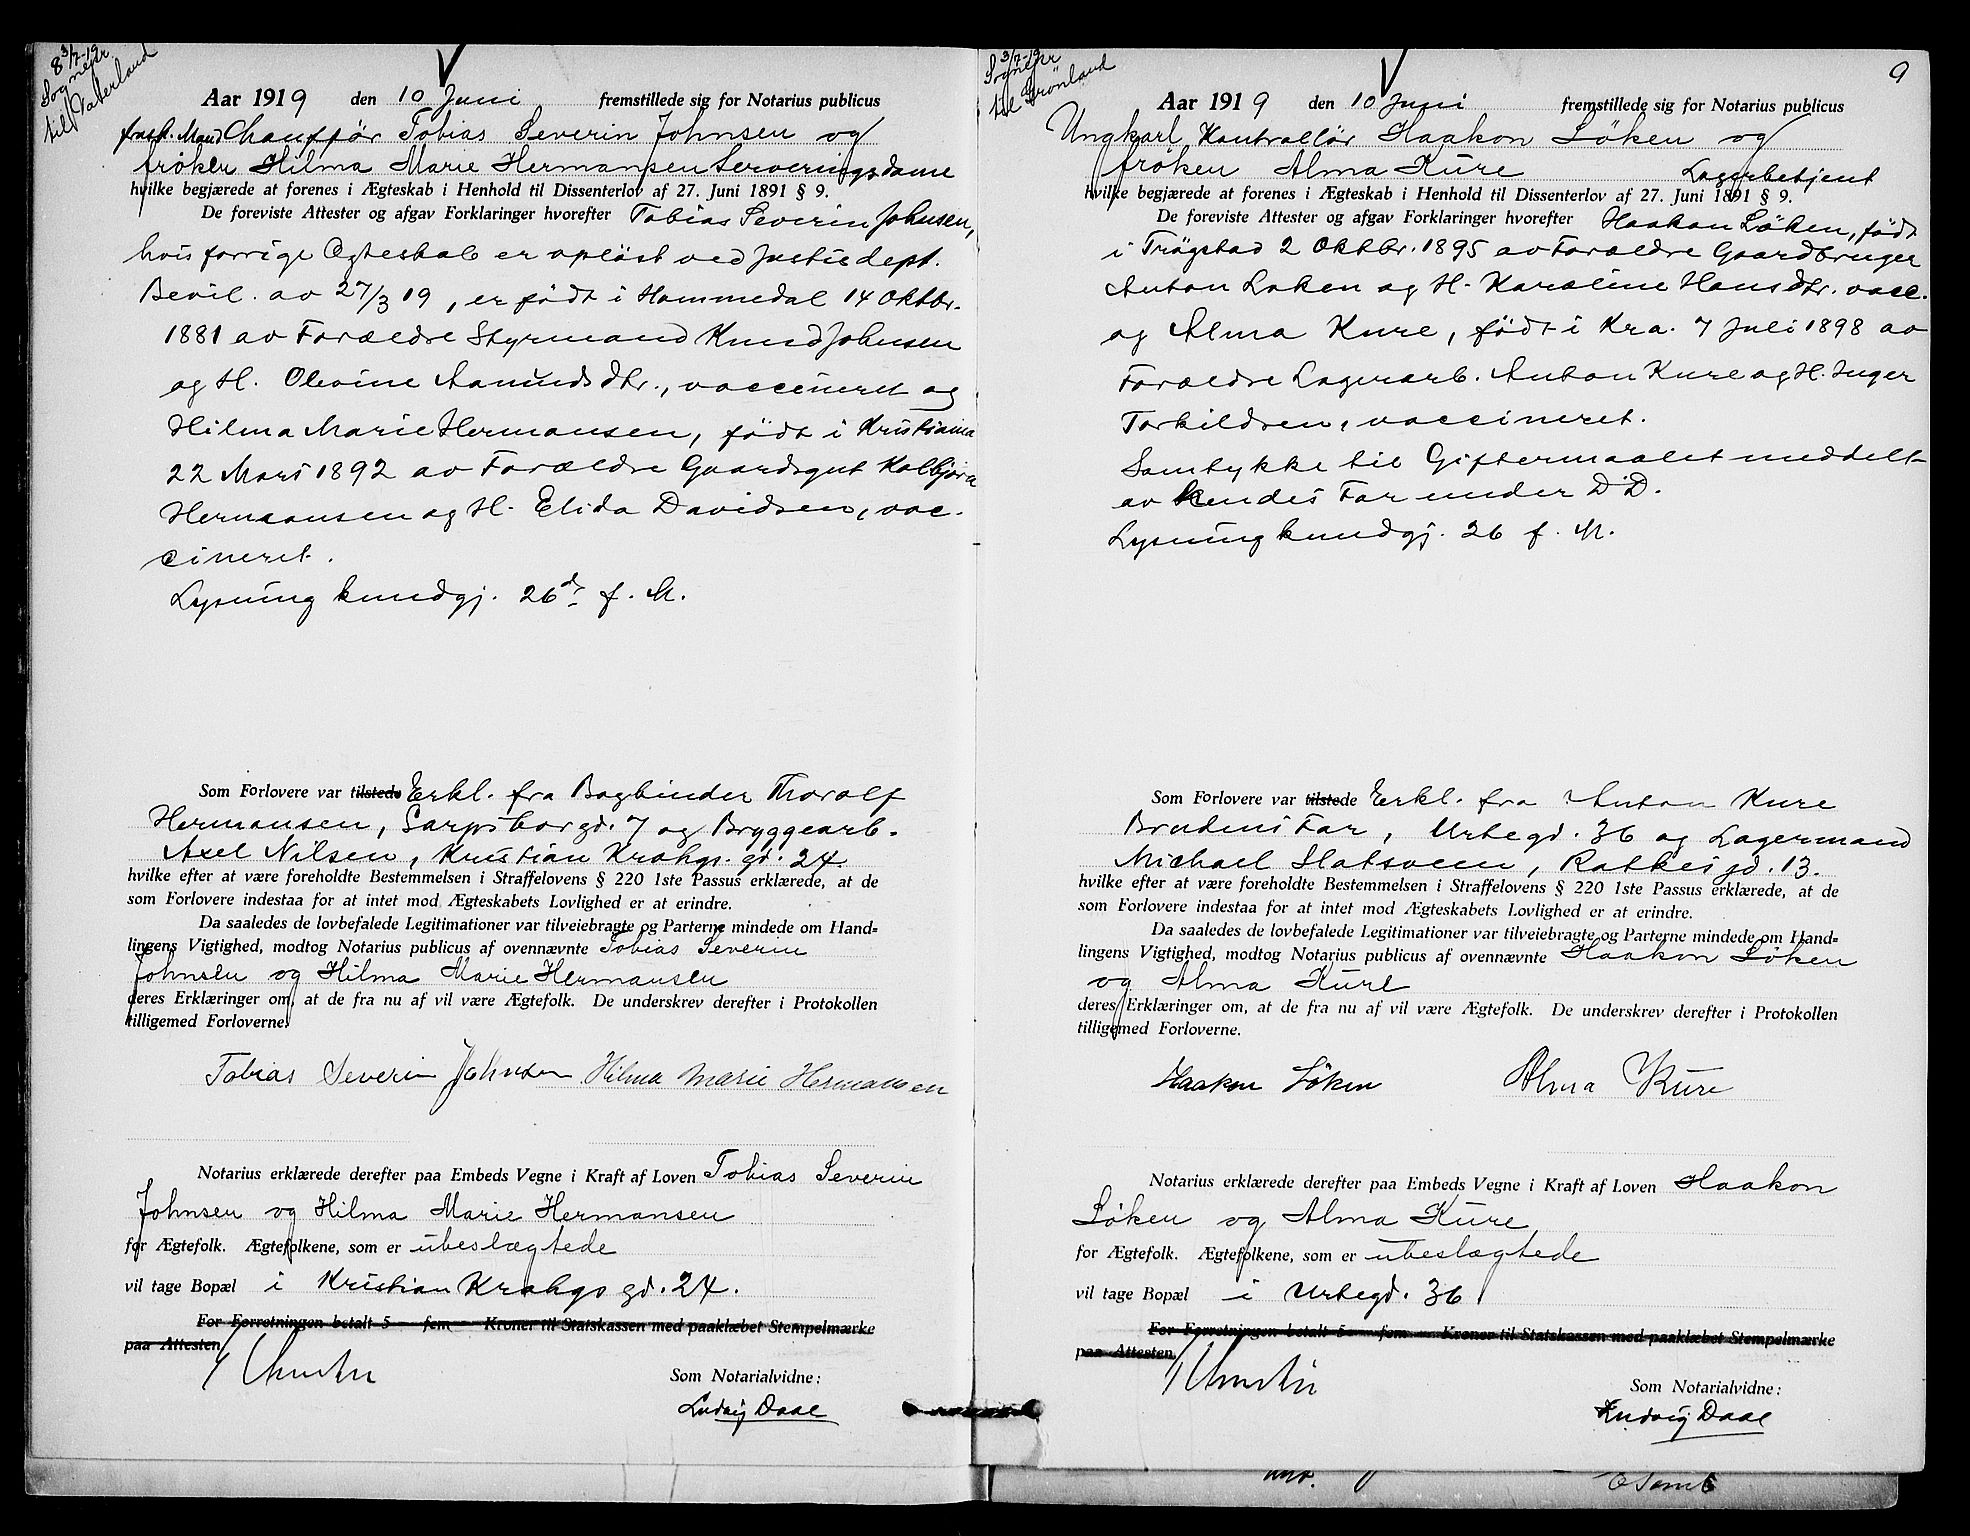 8 3/7-19
Sognepr.
til Vaterland
Aar 1919 den 10 Juni fremstillede sig for Notarius publicus
frask. Mand Chauffør Tobias Severin Johnsen og
frøken Hilma Marie Hermansen Serveringsdame
hvilke begjærede at forenes i Ægteskab i Henhold til Dissenterlov af 27. Juni 1891 § 9.
De foreviste Attester og afgav Forklaringer hvorefter Tobias Severin Johnsen,
hvis forrige Ægteskab er opløst ved Justisdept.
Bevil. av 27/3 19, er født i Hommedal 14 Oktbr.
1881 av Forældre Styrmand Knud Johnsen
og H. Olevine Aanundsdtr., vaccineret og
Hilma Marie Hermansen, født i Kristiania
22 Mars 1892 av Forældre Gaardsgut Kolbjørn
Hermansen og H. Elida Davidsen, vac-
cineret.
Lysning kundgj. 26d. f. M.
Som Forlovere var tilstede Erkl. fra Bogbinder Thorolf
Hermansen, Sarpsborggd. 7 og Bryggearb.
Axel Nilsen, Kristian Krohgs. gd. 24.
hvilke efter at være foreholdte Bestemmelsen i Straffelovens § 220 1ste Passus erklærede, at de
som Forlovere indestaa for at intet mod Ægteskabets Lovlighed er at erindre.
Da saaledes de lovbefalede Legitimationer var tilveiebragte og Parterne mindede om Hand-
lingens Vigtighed, modtog Notarius publicus af ovennævnte Tobias Severin
Johnsen og Hilma Marie Hermansen
deres Erklæringer om, at de fra nu af vil være Ægtefolk. De underskrev derefter i Protokollen
tilligemed Forloverne.
Tobias Severin Johnsen Hilma Marie Hermansen
Notarius erklærede derefter paa Embeds Vegne i Kraft af Loven Tobias Severin
Johnsen og Hilma Marie Hermansen
for Ægtefolk. Ægtefolkene, som er ubeslægtede
vil tage Bopæl i Kristian Krohgs gd. 24.
For Forretningen betalt 5 - fem - Kroner til Statskassen med paaklæbet Stempelmærke
paa Attesten
Som Notarialvidne:
Ludvig Daae
3/7-19
Sognepr
til Grønland
9
Aar 1919 den 10 Juni fremstillede sig for Notarius publicus
Ungkarl Kontrollør Haakon Løken og
frøken Alma Kure Lagerbetjent
hvilke begjærede at forenes i Ægteskab i Henhold til Dissenterlov af 27. Juni 1891 § 9.
De foreviste Attester og afgav Forklaringer hvorefter Haakon Løken, født
i Trøgstad 2 Oktbr. 1895 av Forældre Gaardbruger
Anton Løken og H. Karoline Hansdtr. vacc.
og Alma Kure, født i Kra. 7 Juli 1898 av
Forældre Lagerarb. Anton Kure og H. Inger
Torkildsen, vaccineret.
Samtykke til Giftermaalet meddelt
av hendes Far under D.D.
Lysning kundgj. 26 f. M.
Som Forlovere var tilstede Erkl. fra Anton Kure
Brudens Far, Urtegd. 36 og Lagermand
Michael Slatsveen, Ratkesgd. 13.
hvilke efter at være foreholdte Bestemmelsen i Straffelovens § 220 1ste Passus erklærede, at de
som Forlovere indestaa for at intet mod Ægteskabets Lovlighed er at erindre.
Da saaledes de lovbefalede Legitimationer var tilveiebragte og Parterne mindede om Hand-
lingens Vigtighed, modtog Notarius publicus af ovennævnte Haakon Løken
og Alma Kure
deres Erklæringer om, at de fra nu af vil være Ægtefolk. De underskrev derefter i Protokollen
tilligemed Forloverne.
Haakon Løken Alma Kure
Notarius erklærede derefter paa Embeds Vegne i Kraft af Loven Haakon
Løken og Alma Kure
for Ægtefolk. Ægtefolkene, som er ubeslægtede
vil tage Bopæl i Urtegd. 36
For Forretningen betalt 5 - fem - Kroner til Statskassen med paaklæbet Stempelmærke
paa Attesten.
Som Notarialvidne:
Ludvig Daae